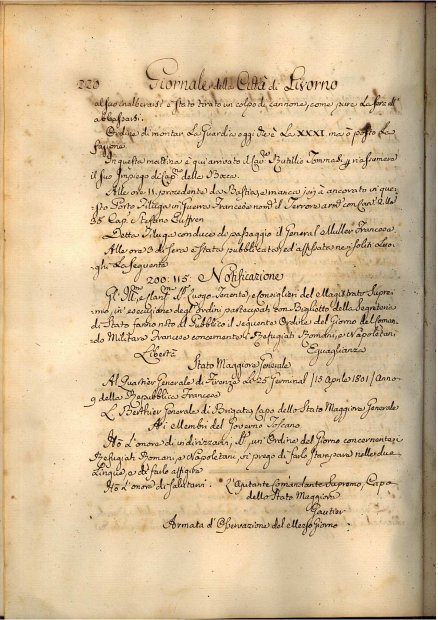 220 Giornale della Città di Livorno
al suo inalberarsi è stato tirato un colpo di cannone, come pure La sera all'
abbassarsi.
Ordine di montar La Guardia oggi è La XXXI. ma è posto La
fazione.
In questa mattina è quì arrivato il Cav. Rutilio Tommasi p riassumere
il suo Impiego di Cap. della Bocca.
Alle ore 11. procedente da Bastia e manca jeri è ancorato in que-
sto Porto Filuga in Guerra Francese nom. il Terrore arm. con Can.
35 Cap. Steffino Luffren
Detta Filuga conduce di passaggio il General Muller Francese.
Alle ore 3 di sera è stata pubblicata ed affissata nei soliti Luo-
ghi La seguente
200: 115: Notificazione
Gl' Ill. e Clar. SS. Luogo Tenente, e Consiglieri del Magistrato Supre-
mo, in esecuzione degl'Ordini partecipati con Biglietto della Segreteria
di Stato fanno noto al Pubblico il seguente Ordine del Giorno del Coman-
do Militare Francese concernente i Refugiati Romani, e Napoletani
Libertà Eguaglianza
Stato Maggiore Generale
Al Quartier Generale di Firenze Li 25 Germinal / 15 Aprile 1801 / Anno
9 della Repubblica Francese
L. Berthier Generale di Brigata, Capo dello Stato Maggiore Generale
Ai Membri del Governo Toscano
Hò L'onore di indirizzarvi, SS. un'Ordine del Giorno concernente i
Refugiati Romani, e Napoletani, vi prego di farlo stampare nelle due
Lingue, e di farlo affigere
Hò L'onore di salutarvi. L'Ajutante Comandante Supremo, Capo
dello Stato Maggiore
Gautier
Armata d'Osservazione del Mezzo Giorno